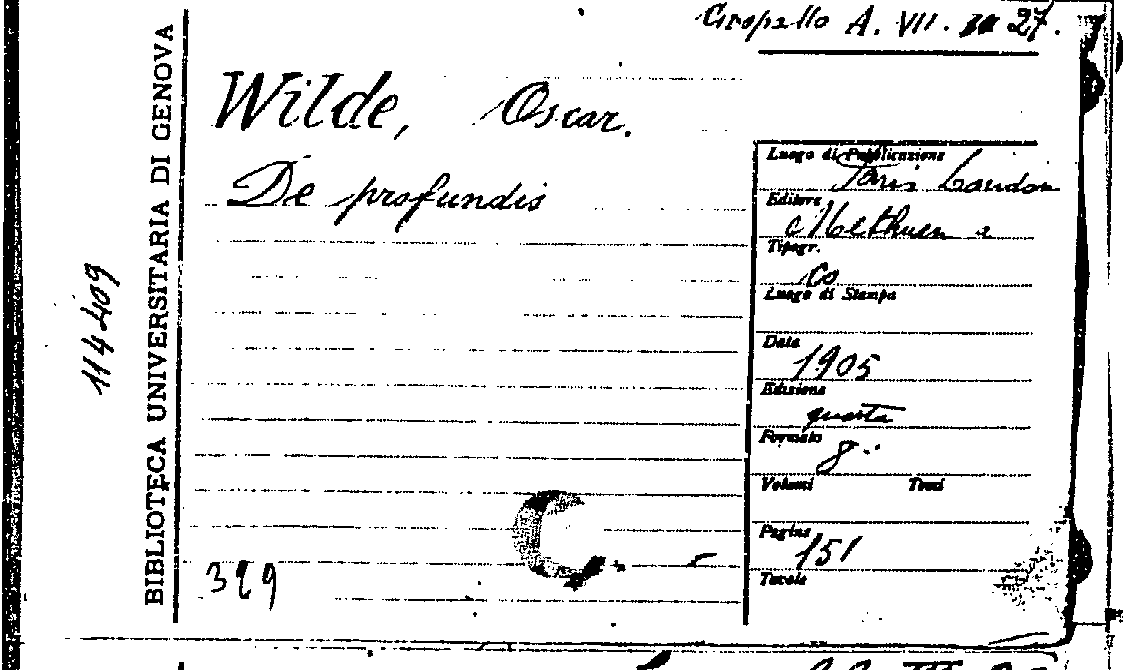 Gropallo A. VII. 27.
Wilde, Oscar.
De profundis
BIBLIOTECA UNIVERSITARIA DI GENOVA
114409
Luogo di Pubblicazione
Paris London
Editore
Methuen &
Tipogr.
Co
Luogo di Stampa
Data
1905
Edizione
quarta
Formato
8°
Volumi Tomi
Pagine
151
Tavole
329